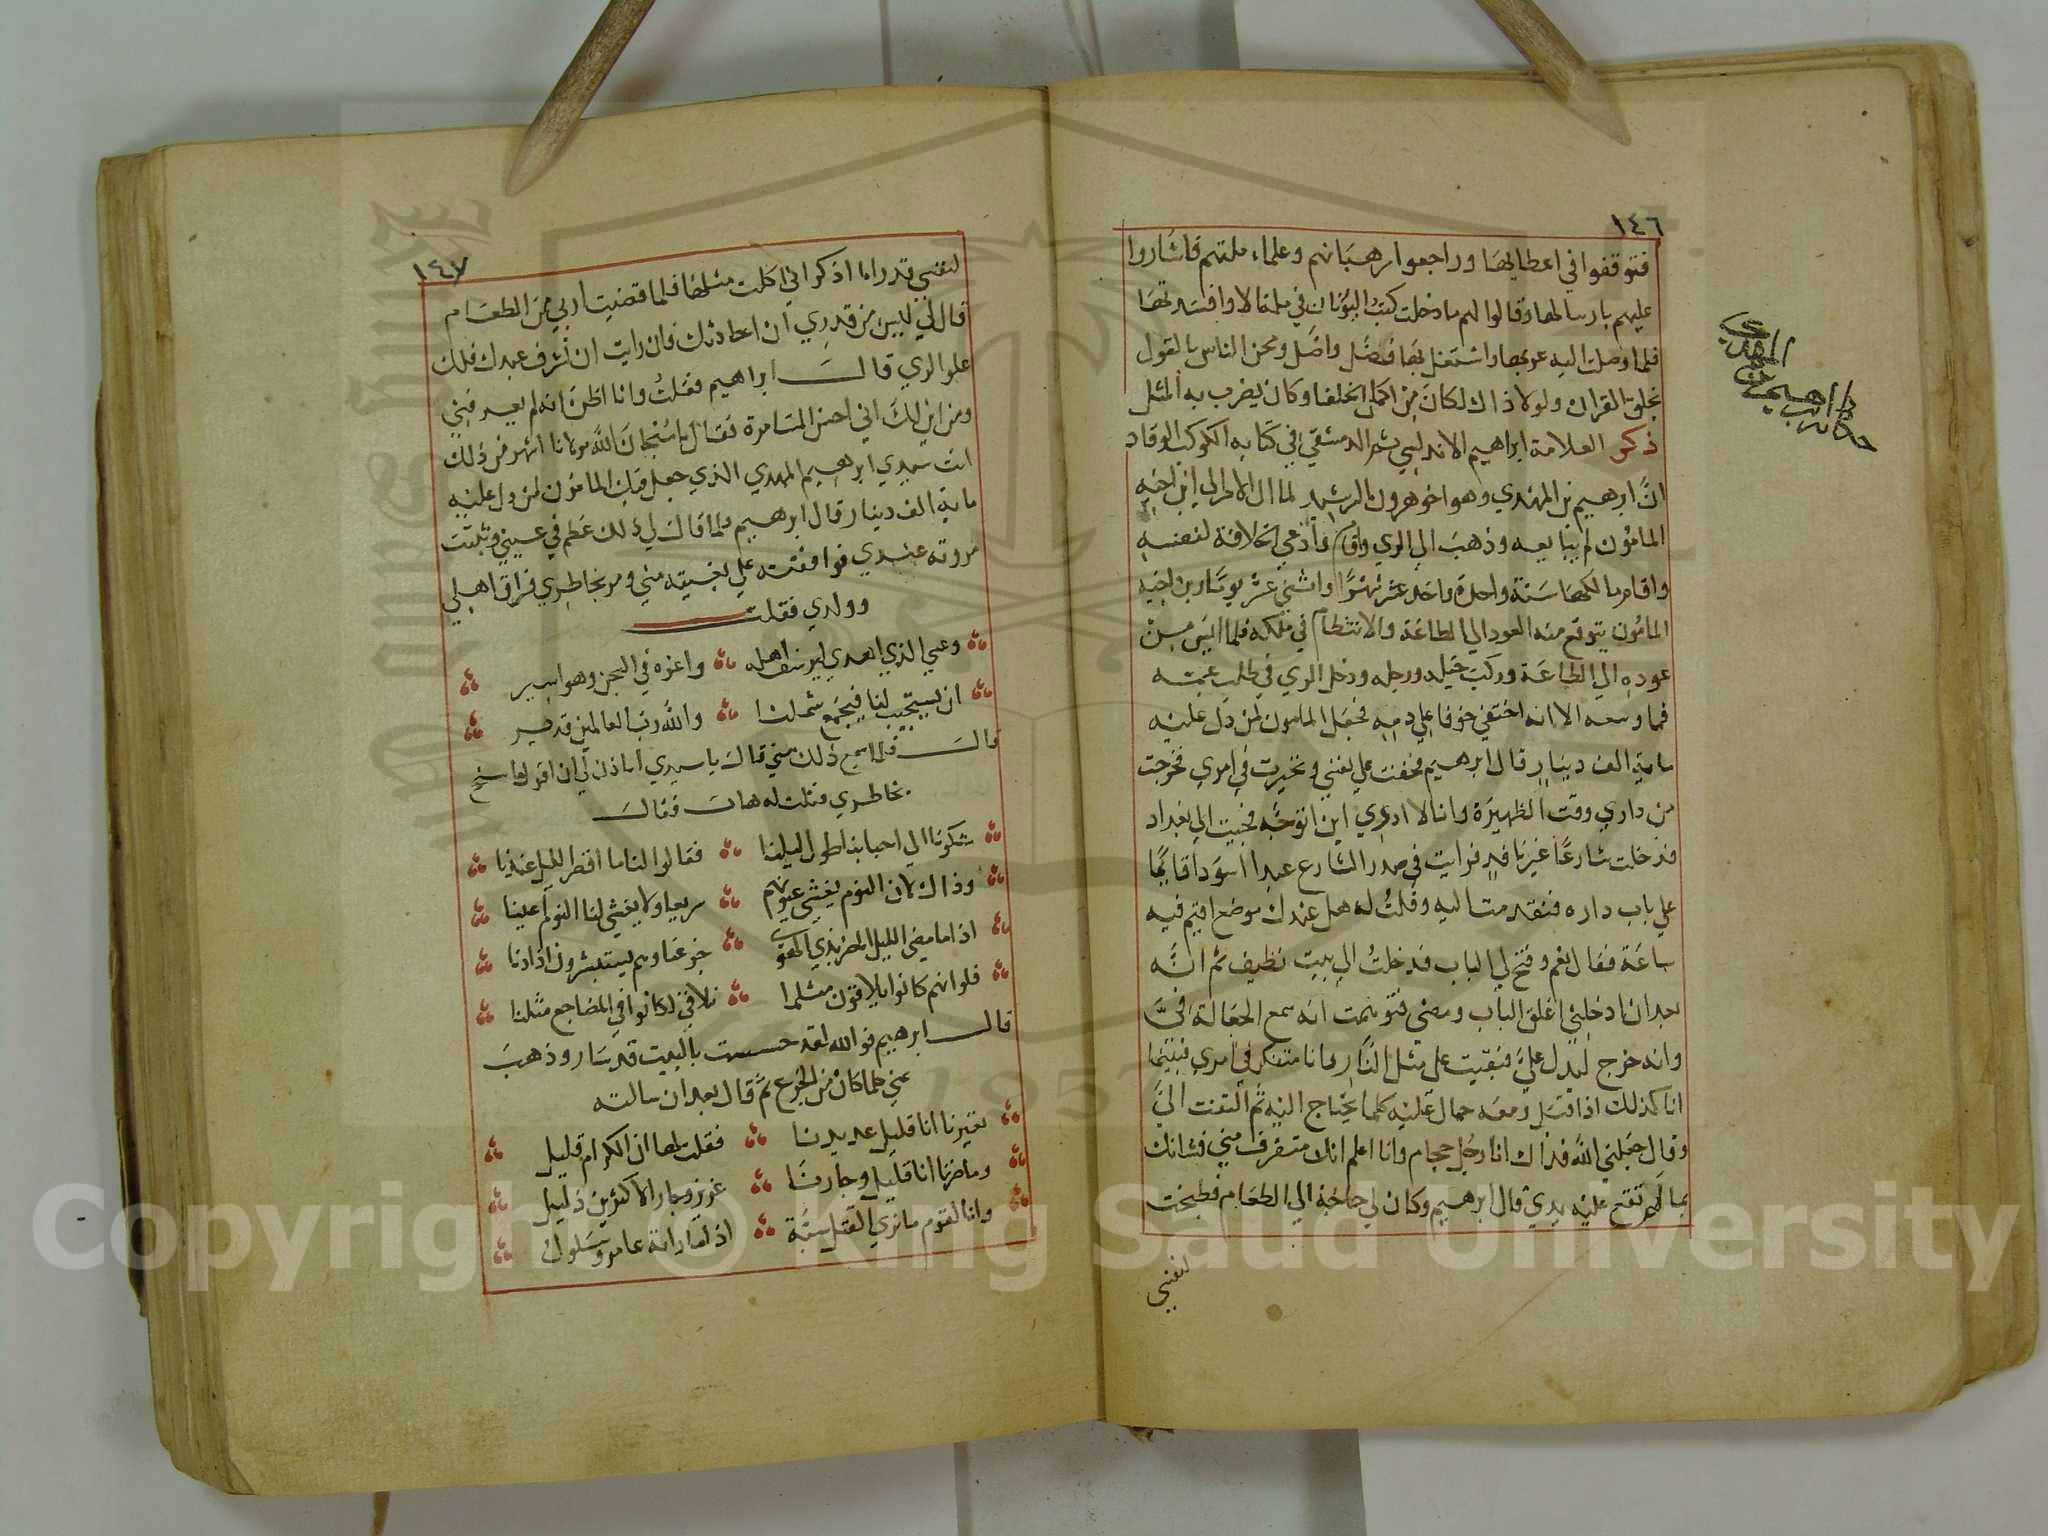 ١٤٦
فتوقفوا في اعطائها وراجعوا رهبانهم وعلماء ملتهم فاشاروا
عليهم بارسالها وقالوا لهم ما دخلت كتب اليونان في ملة الا وافسدتها
فلما وصلت اليه عربها واشتغل بها فضل واضل ومحن الناس بالقول
بخلق القران ولولا ذاك لكان من اكمل الخلفا وكان يضرب به المثل
ذكر العلامة ابراهيم الاندلسي ثم الدمشقي في كتابه الكوكب الوقاد
ان ابرهيم بن المهدي وهو اخو هرون الرشيد لما ال الامر الي ابن اخيه
المامون لم يبايعه وذهب الي الري واقام وادعي الخلافة لنفسه
واقام مالكها سنة واحدة واحد عشر شهرا واثني عشر يوما وبن اخيه
المامون يتوقع منه العود الي الطاعة والانتظام في ملكه فلما ايس من
عوده الي الطاعة وركب خيله ورجله ودخل الري في طلب عمه
فما وسعه الا انه اختفي خوفا علي دمه فجعل المامون لمن دل عليه
ماية الف دينار قال ابرهيم فخفت علي نفسي وتحيرت في امري فخرجت
من داري وقت الظهيرة وانا لا ادري اين اتوجه فجيت الي بغداد
فدخلت شارعا غير نافد فرايت في صدر الشارع عبدا اسود اقايما
علي باب داره فتقدمت اليه وقلت له هل عندك موضع اقيم فيه
ساعة فقال نعم وفتح لي الباب فدخلت الي بيت نظيف ثم انه
بعد ان ادخلني اغلق الباب ومضي فتوهمت انه سمع الجعالة فيَّ
وانه خرج ليدل علي فبقيت علي مثل النار وانا متفكر في امري فبينما
انا كذلك اذ اقبل ومعه حمال عليه كلما يحتاج اليه ثم التفت الي
وقال جعلني الله فداك انا رجل حجام وانا اعلم انك متقرف مني فشانك
بما لم تقع عليه يدي قال ابرهيم وكان لي حاجة الي الطعام فطبخت
لنفسي
حكاية ابراهيم بن المهدي
١٤٧
لنفسي قدرا ما اذكر اني اكلت مثلها فلما قضيت اربي من الطعام
قال لي ليس من قدري ان احادثك فان رايت ان تشرف عبدك فلك
علو الري قال ابراهيم فقلت وانا اظن انه لم يعرفني
ومن اين لك اني احسن المسامرة فقال يا سبحان الله مولانا اشهر من ذلك
انت سيدي ابرهيم المهدي الذي جعل فيك المامون لمن دل عليه
ماية الف دينار قال ابرهيم فلما قال لي ذلك عظم في عيني وثبتت
مروته عندي فوافقته علي بغيته مني ومر بخاطري فراق اهلي
وولدي فقلت
وعسي الذي اهدي ليوسف اهله واعزه في السجن وهو اسير
ان يستجيب لنا فيجمع شملنا والله رب العالمين قدير
قال فلما سمع ذلك مني قال يا سيدي اتاذن لي ان اقول ما سنح
بخاطري فقلت له هات فقال
شكونا الي احبابنا طول ليلنا فقالوا لنا ما اقصر الليل عندنا
وذاك لان النوم يغشي عيونهم سريعا ولا يغشي لنا النوم اعينا
اذا ما مضي الليل المضر بذي الهوي جزعنا وهم يستبشرون اذا دنا
فلو انهم كانوا يلاقون مثلما نلاقي لكانوا في المضاجع مثلنا
قال ابرهيم فوالله لقد حسست بالبيت قد سار وذهب
عني كلما كان من الجزع ثم قال بعد ان سالته
تعيرنا انا قليل عديدنا فقلت لها ان الكرام قليل
وما ضرنا انا قليل وجارنا عزيز وجار الاكثرين ذليل
وانا لقوم ما نري القتل سبة اذا ما راته عامر وسلول
Copyright © King Saud University
1957